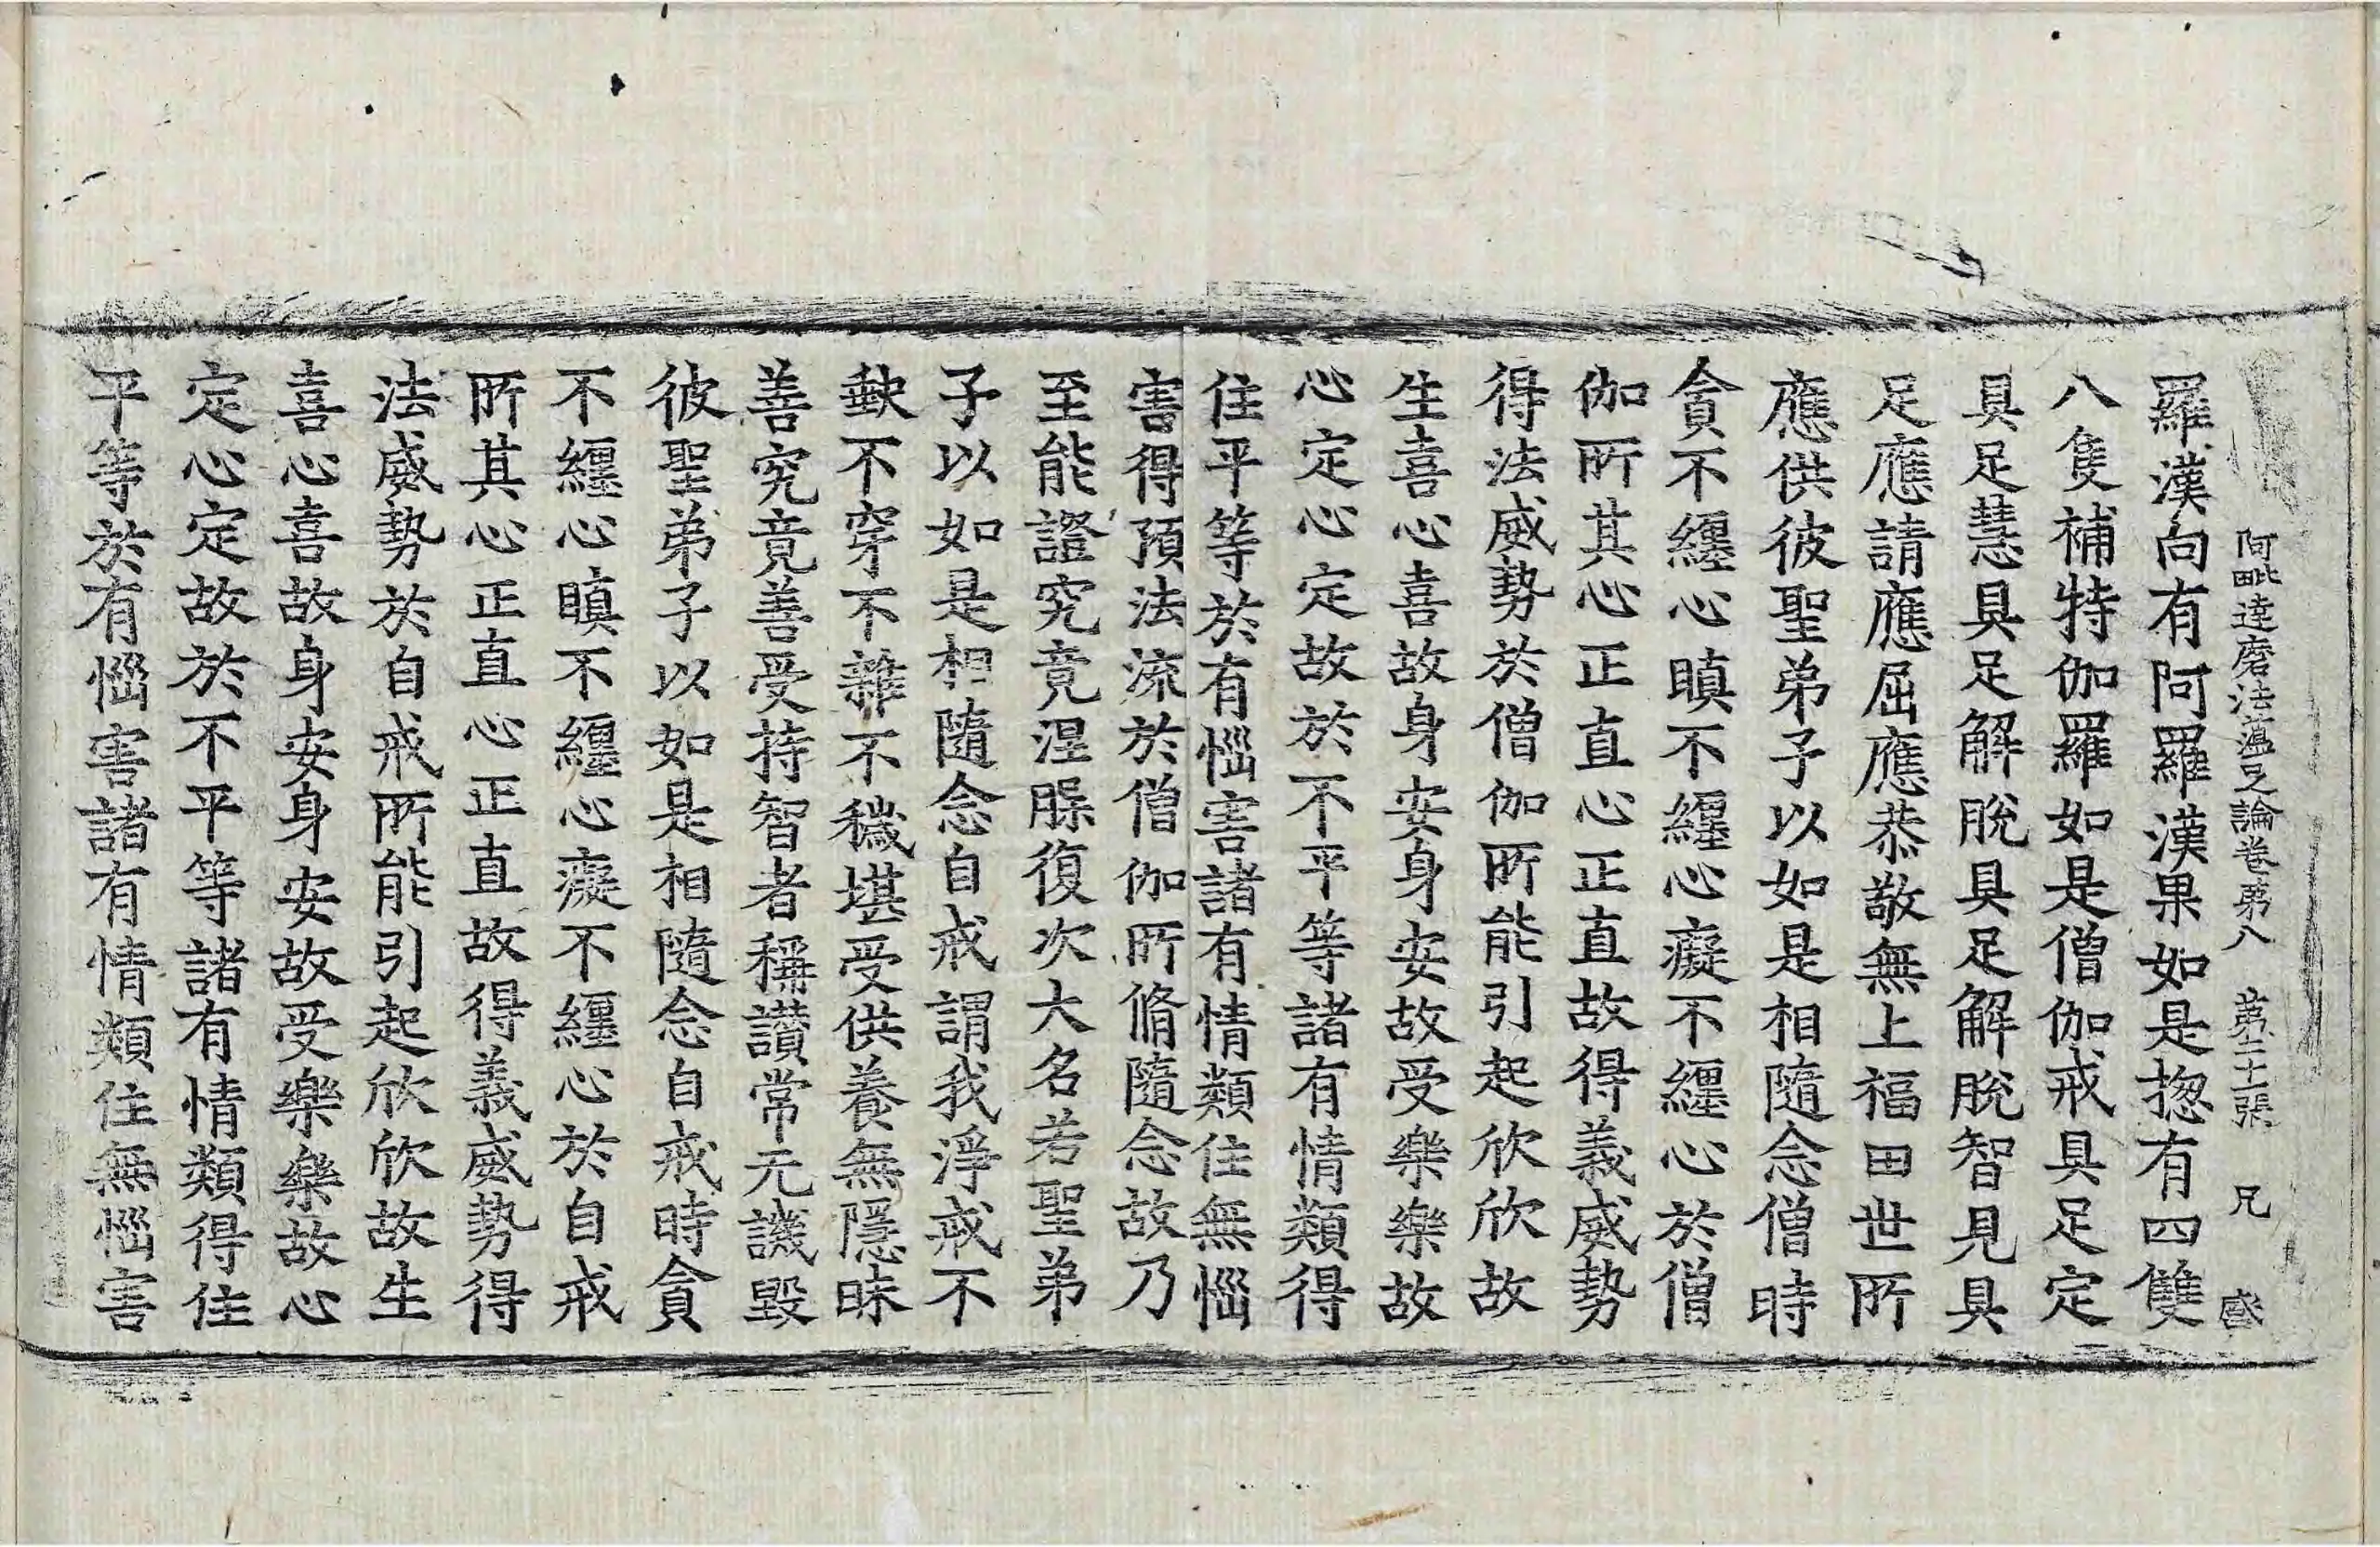 阿毗達磨法蘊足論卷第八　第二十張　兄　𥁞
羅漢向有阿羅漢果如是揔有四雙
八隻補特伽羅如是僧伽戒具足定
具足慧具足解脫具足解脫智見具
足應請應屈應恭敬無上福田世所
應供彼聖弟子以如是相隨念僧時
貪不纏心瞋不纏心癡不纏心於僧
伽所其心正直心正直故得義威勢
得法威勢於僧伽所能引起欣欣故
生喜心喜故身安身安故受樂樂故
心定心定故於不平等諸有情類得
住平等於有惱害諸有情類住無惱
害得預法流於僧伽所脩隨念故乃
至能證究竟涅槃復次大名若聖弟
子以如是相隨念自戒謂我淨戒不
缺不穿不雜不穢堪受供養無隱昧
善究竟善受持智者稱讃常无譏毀
彼聖弟子以如是相隨念自戒時貪
不纏心瞋不纏心癡不纏心於自戒
所其心正直心正直故得義威勢得
法威勢於自戒所能引起欣欣故生
喜心喜故身安身安故受樂樂故心
定心定故於不平等諸有情類得住
平等於有惱害諸有情類住無惱害